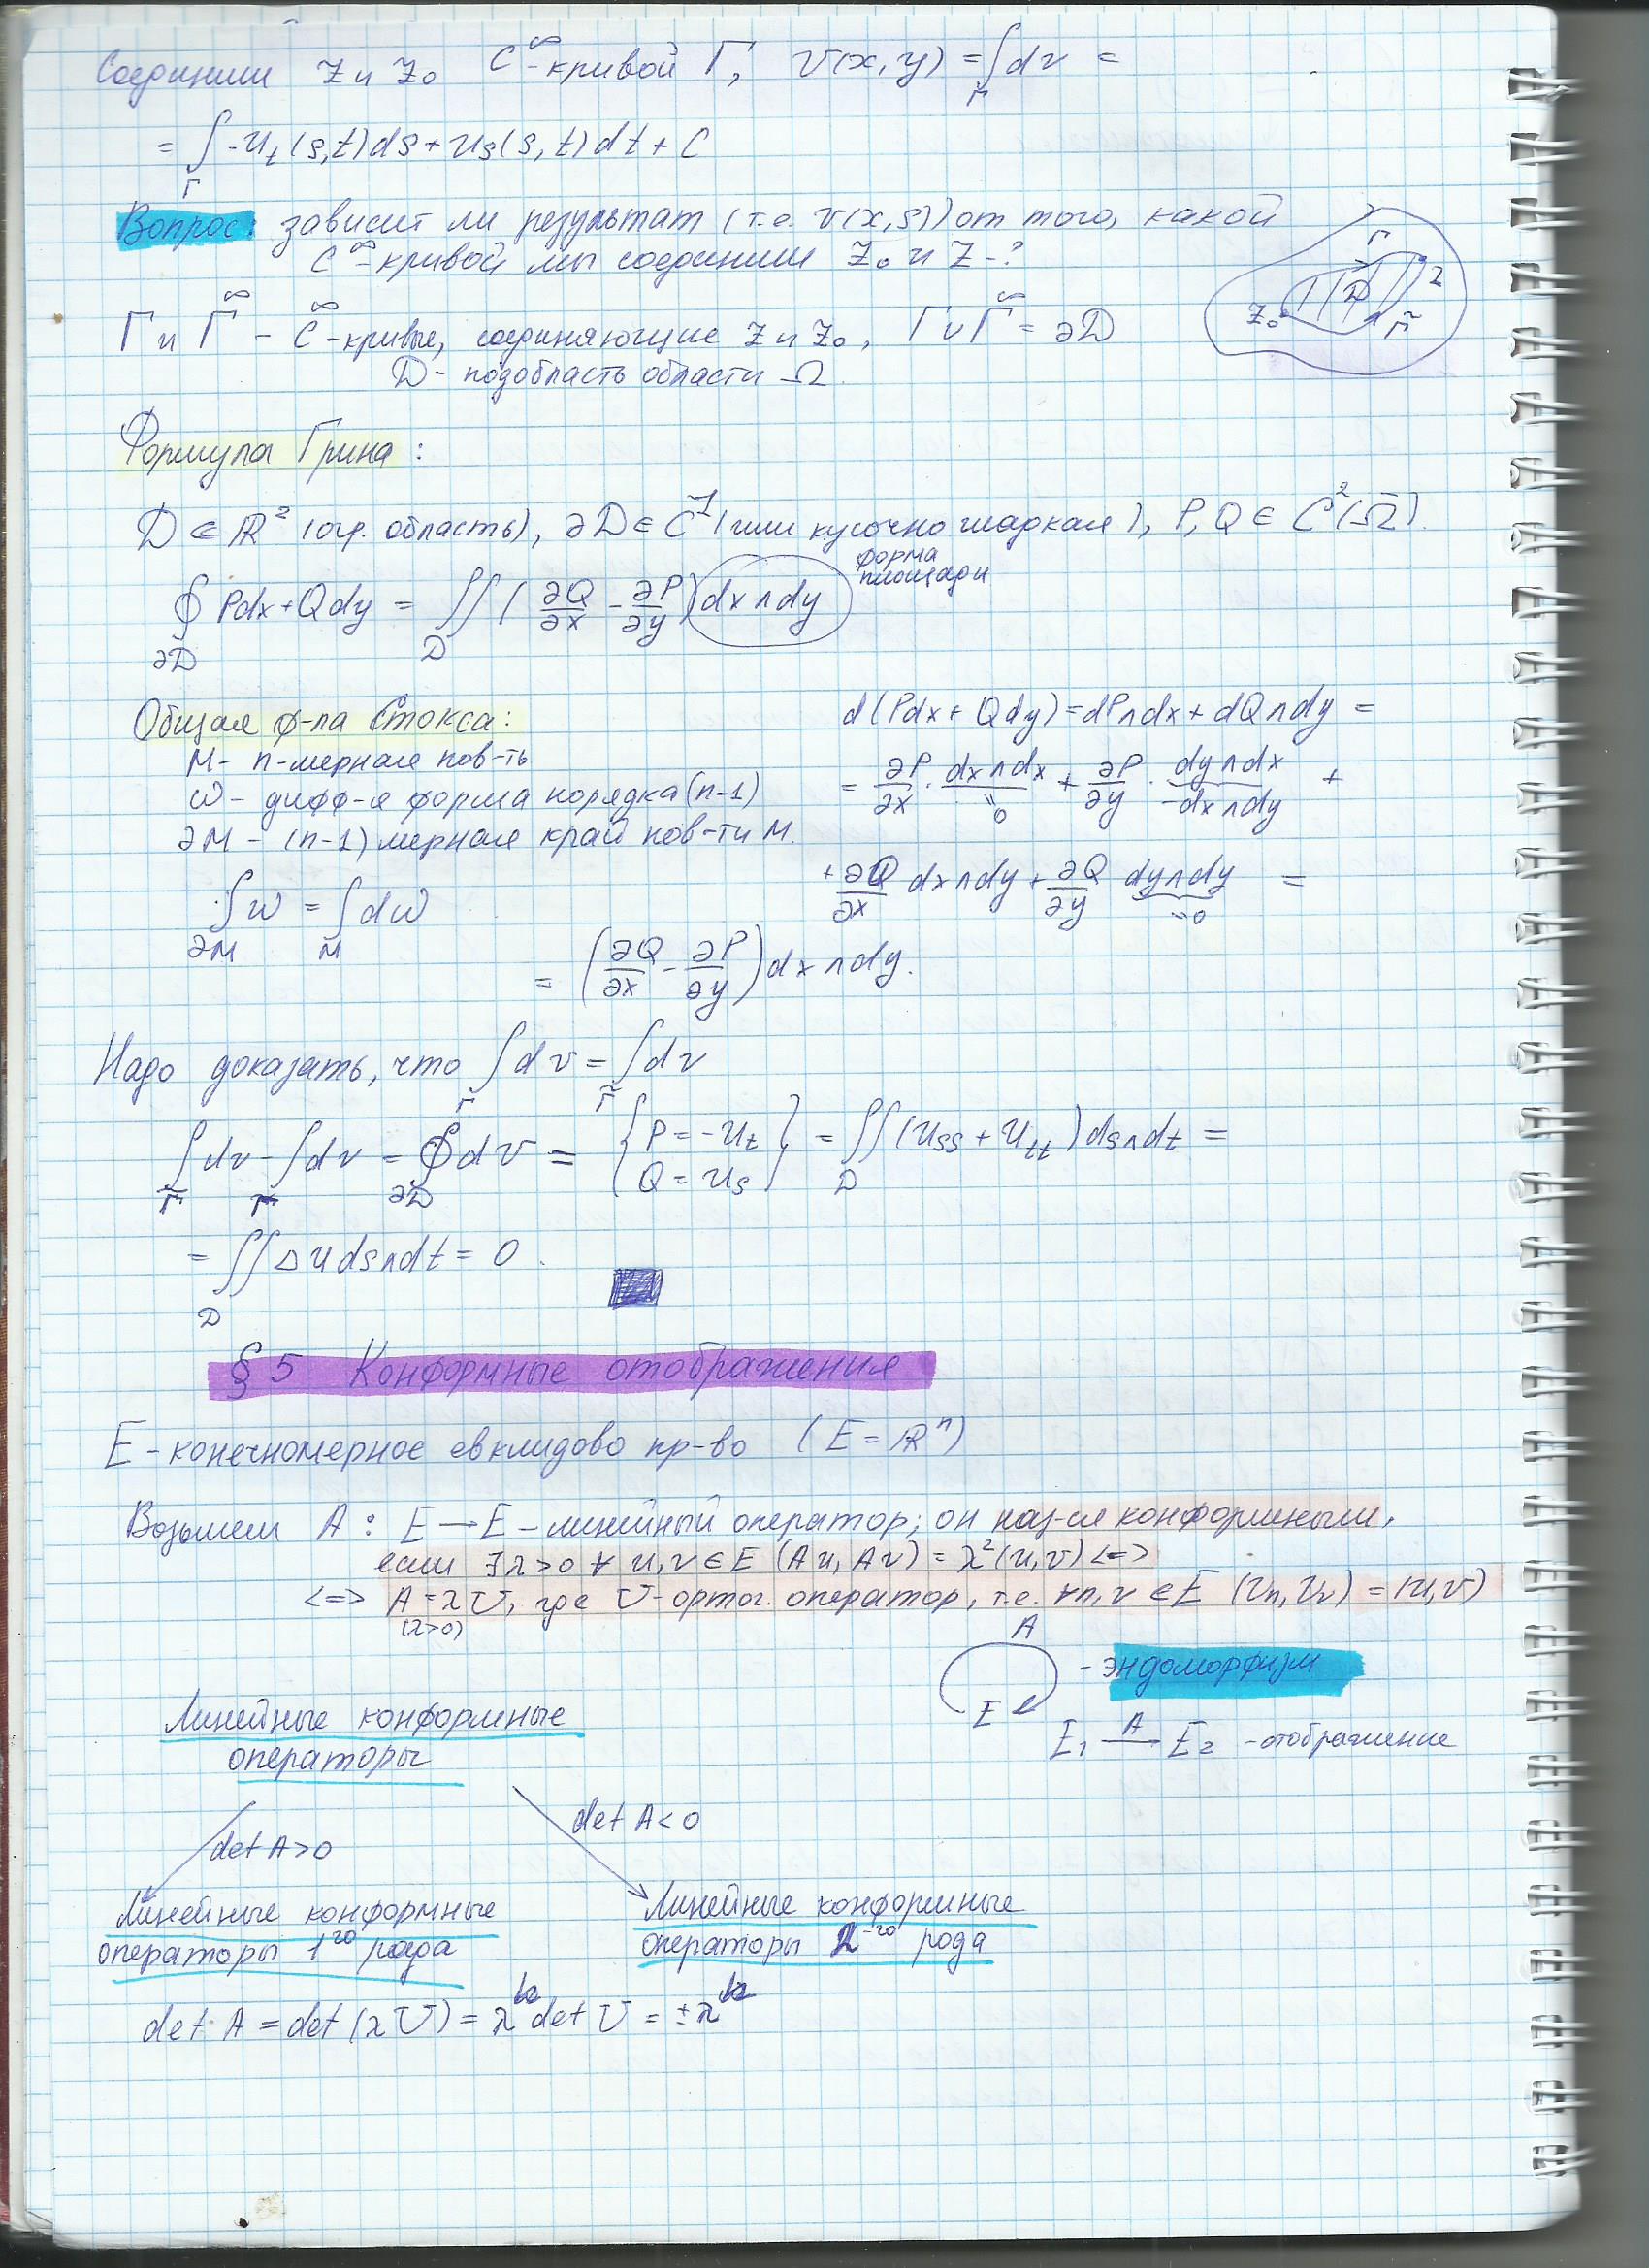 Соединим z и z₀ C^∞-кривой Γ, v(x,y) = ∫_Γ dv =
= ∫_Γ -u_t(s,t)ds + u_s(s,t)dt + C
Вопрос: зависит ли результат (т.е. v(x,s)) от того, какой
C^∞-кривой мы соединим z₀ и z - ?
Γ
z
D
z₀
Γ̃
Γ и Γ̃ - C^∞-кривые, соединяющие z и z₀, Γ∪Γ̃ = ∂D
D - подобласть области Ω.
Формула Грина:
D ⊂ ℝ² (огр. область), ∂D ∈ C¹ (или кусочно гладкая), P, Q ∈ C²(Ω̄).
форма
площади
∮_∂D Pdx + Qdy = ∬_D (∂Q/∂x - ∂P/∂y) dx∧dy
Общая ф-ла Стокса:
M - n-мерная пов-ть
ω - дифф-я форма порядка (n-1)
∂M - (n-1) мерная край пов-ти M.
∫_∂M ω = ∫_M dω
d(Pdx + Qdy) = dP∧dx + dQ∧dy =
= ∂P/∂x · dx∧dx (=0) + ∂P/∂y · dy∧dx (-dx∧dy) +
+ ∂Q/∂x dx∧dy + ∂Q/∂y dy∧dy (=0) =
= (∂Q/∂x - ∂P/∂y) dx∧dy.
Надо доказать, что ∫_Γ dv = ∫_Γ̃ dv
∫_Γ̃ dv - ∫_Γ dv = ∮_∂D dv = { P = -u_t Q = u_s } = ∬_D (u_ss + u_tt) ds∧dt =
= ∬_D Δu ds∧dt = 0.
§ 5 Конформные отображения
E - конечномерное евклидово пр-во (E = ℝⁿ)
Возьмем A : E → E - линейный оператор; он наз-ся конформным,
если ∃ λ>0 ∀ u,v ∈ E (Au, Av) = λ²(u,v) <=>
<=> A = λU, где U - ортог. оператор, т.е. ∀ u,v ∈ E (Uu, Uv) = (u,v)
(λ>0)
A
E
- эндоморфизм
E₁ —A— E₂ - отображение
Линейные конформные
операторы
det A<0
det A>0
Линейные конформные
операторы 1^го рода
Линейные конформные
операторы 2^-го рода
det A = det (λU) = λⁿ det U = ±λⁿ